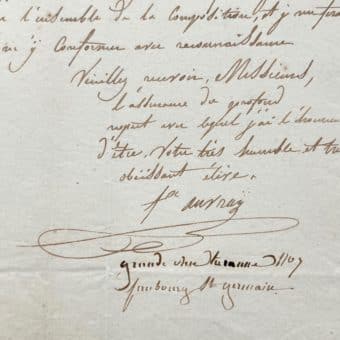 l'ensemble de la Composition, et j
y Conformer avec reconnaissance
Veuillez recevoir, Messieurs,
l'assurance du profond
respect avec lequel j'ai l'honneur
d'être, Votre très humble et
obéissant élève.
f^x auvray
grande rue Varenne n° 7
faubourg St germain.